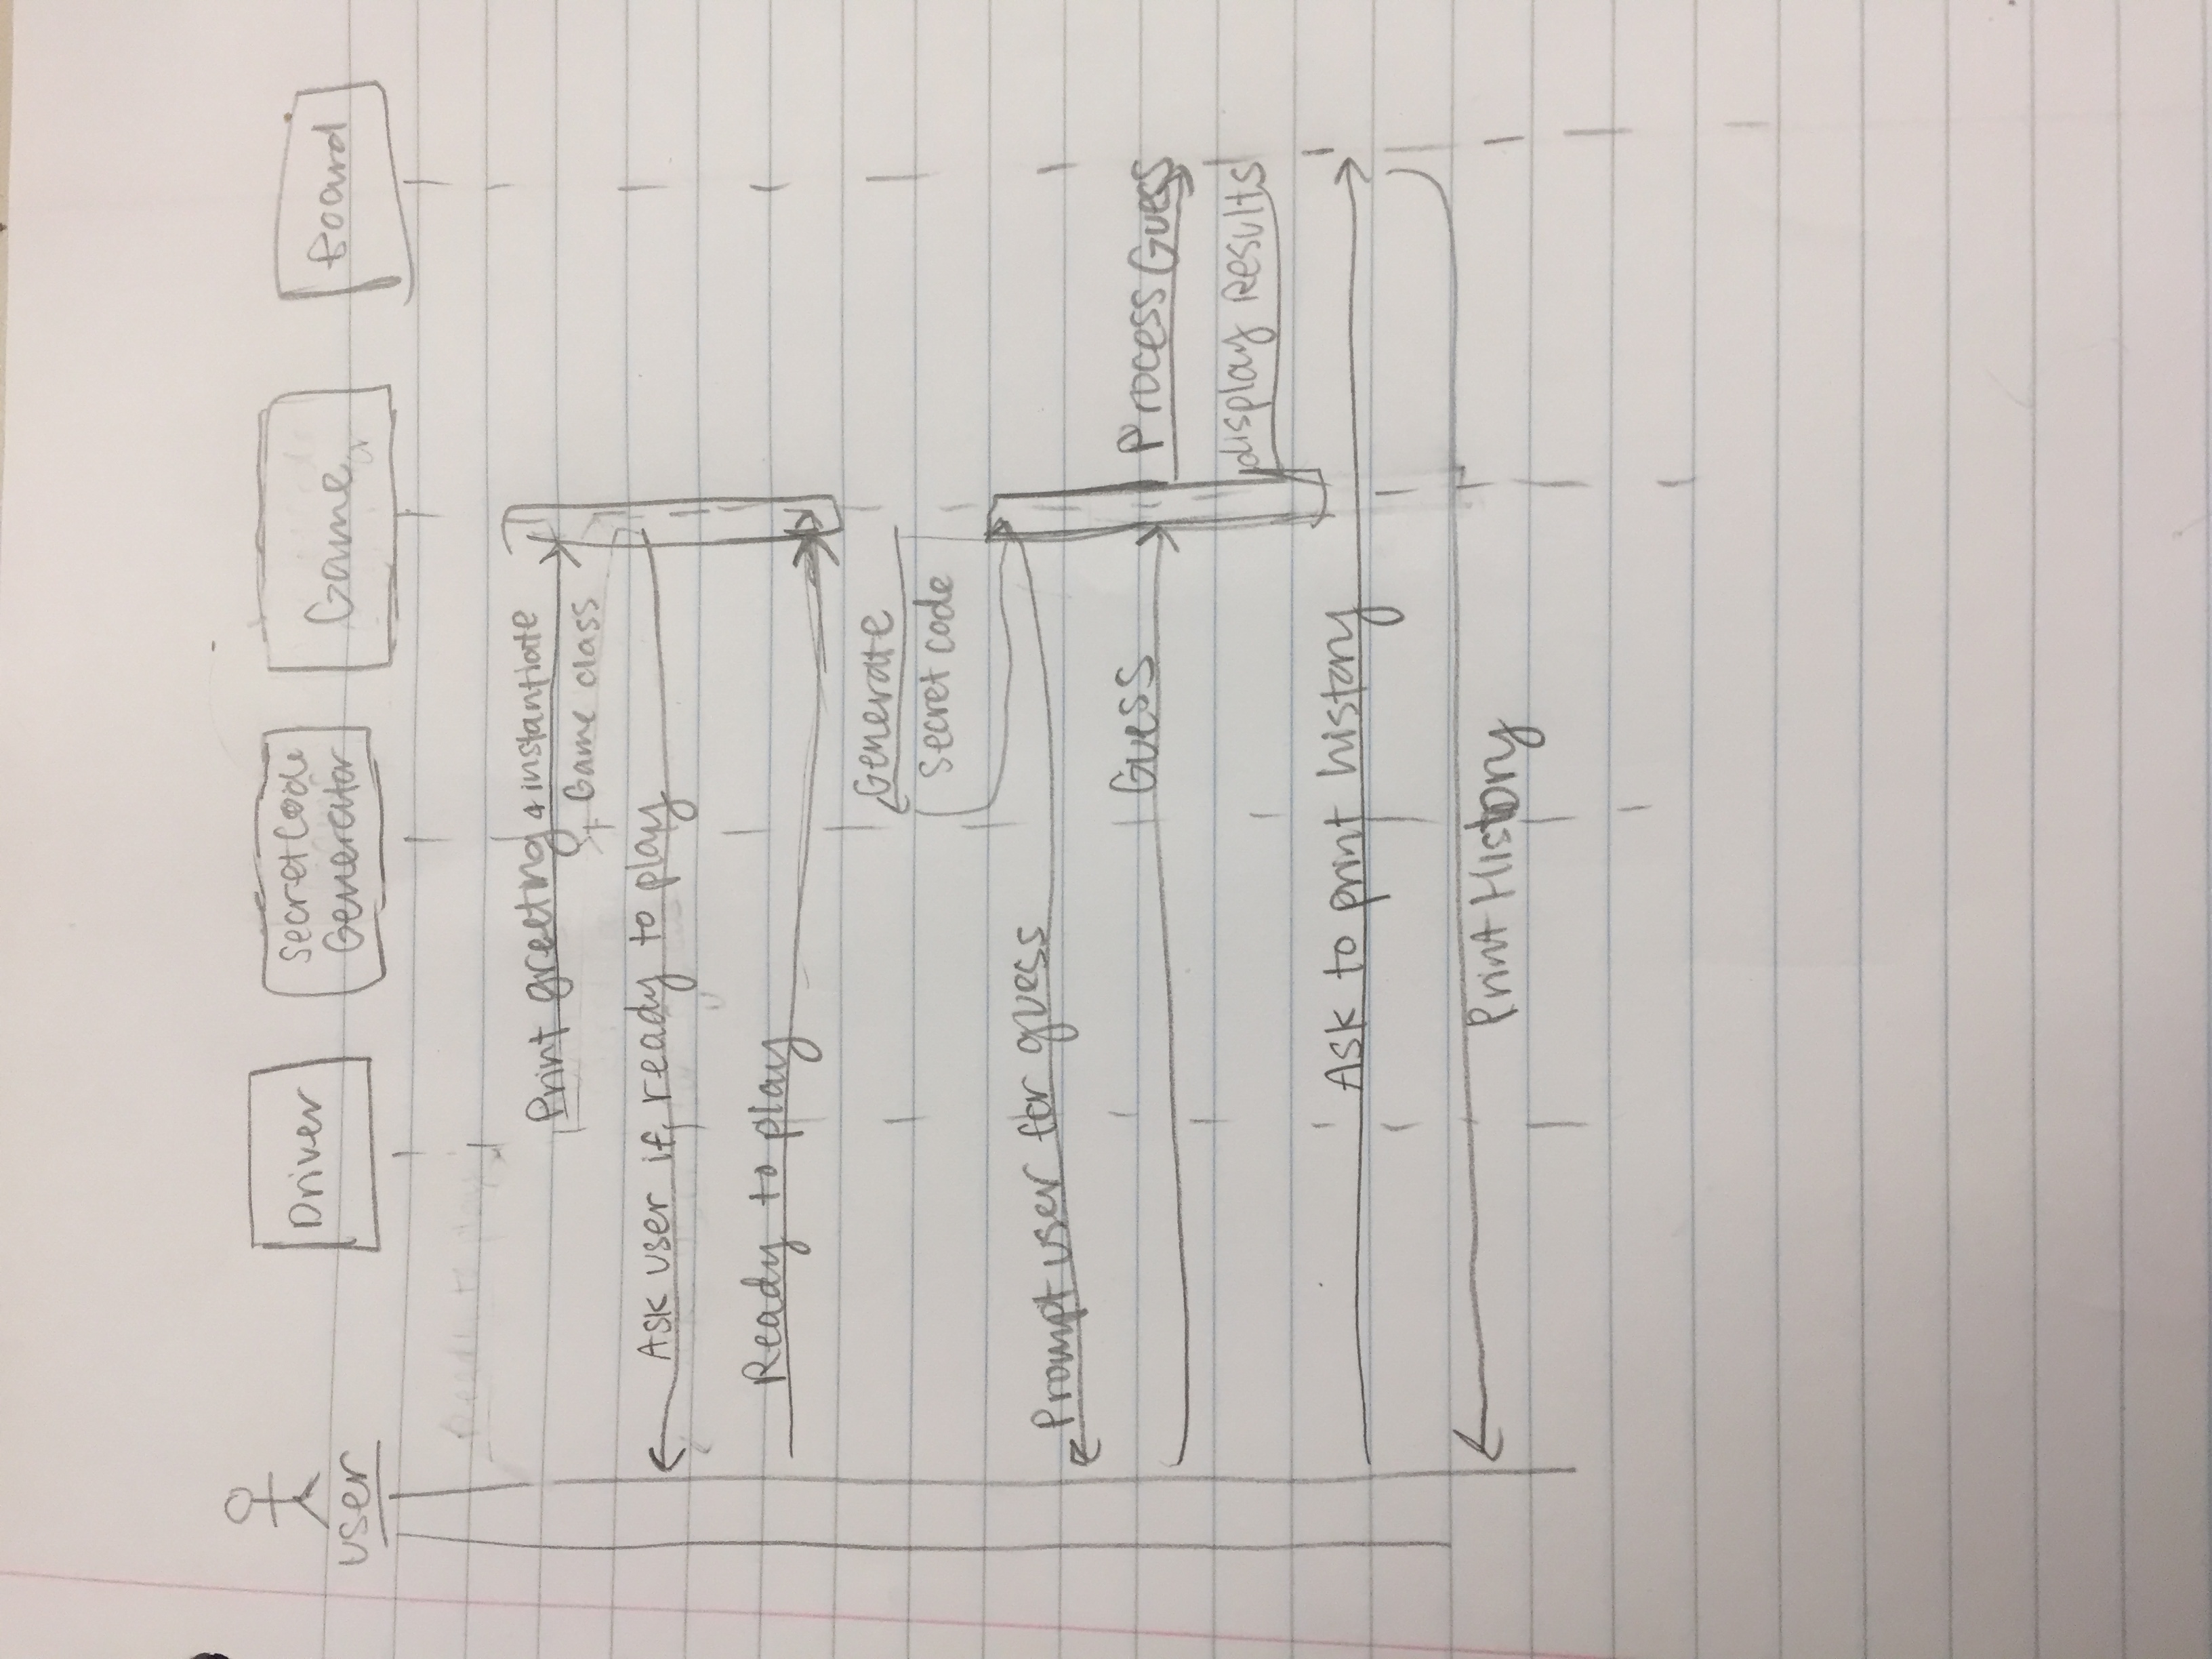 user
Driver
SecretCode
Generator
Game
Board
Ready to play
Print greeting & instantiate
Game class
Ask user if ready to play
Ready to play
Generate
Secret code
Prompt user for guess
Guess
Process Guess
display Results
Ask to print history
Print History